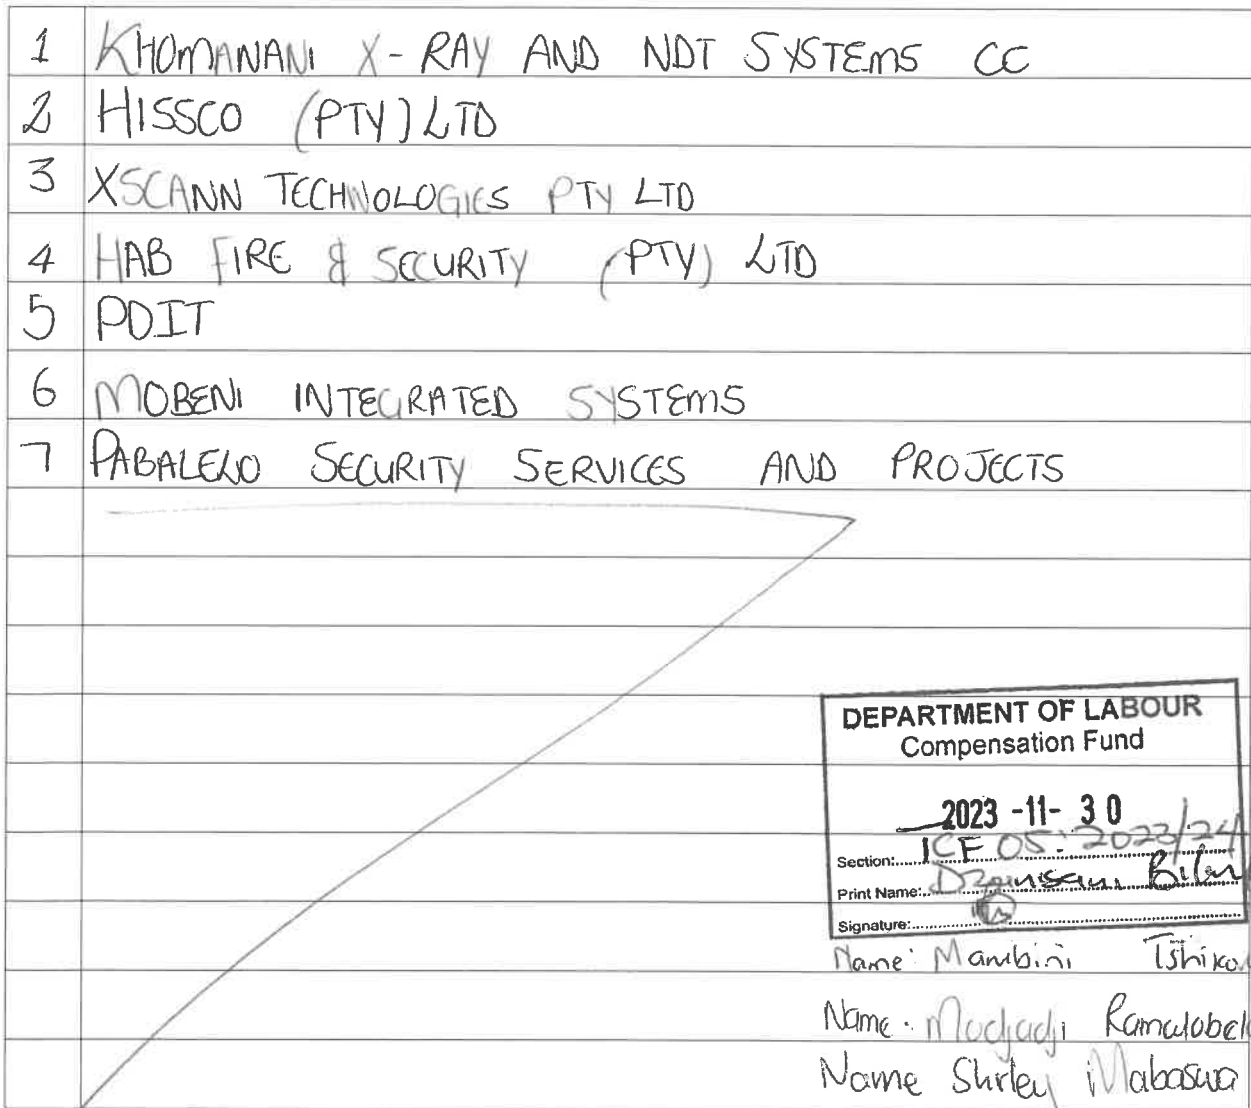 1 KHOMANANI X-RAY AND NDT SYSTEMS CC
2 HISSCO (PTY) LTD
3 XSCANN TECHNOLOGIES PTY LTD
4 HAB FIRE & SECURITY (PTY) LTD
5 PDIT
6 MOBENI INTEGRATED SYSTEMS
7 PABALELO SECURITY SERVICES AND PROJECTS
DEPARTMENT OF LABOUR
Compensation Fund
2023 -11- 30
Section: ICF 05: 2023/24
Print Name:
Signature:
Name: Mambini
Name: Modjadji
Name Shirley Mabaswa